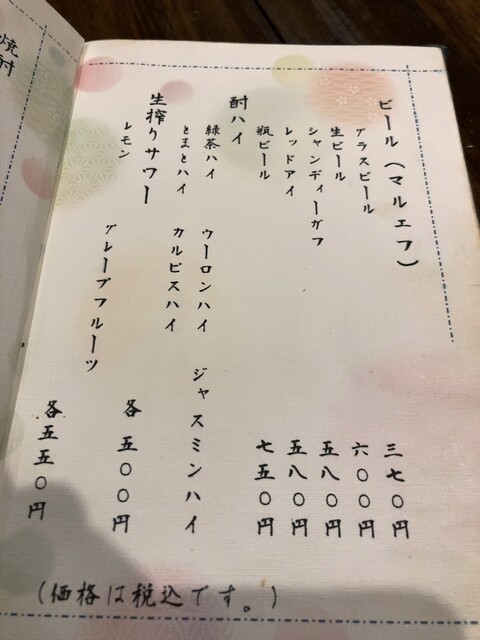 ビール(マルエフ)
グラスビール 三七〇円
生ビール 六〇〇円
シャンディーガフ 五八〇円
レッドアイ 五八〇円
瓶ビール 七五〇円
酎ハイ
緑茶ハイ ウーロンハイ ジャスミンハイ
とまとハイ カルピスハイ
各五〇〇円
生搾りサワー
レモン グレープフルーツ
各五五〇円
(価格は税込です。)
焼酎